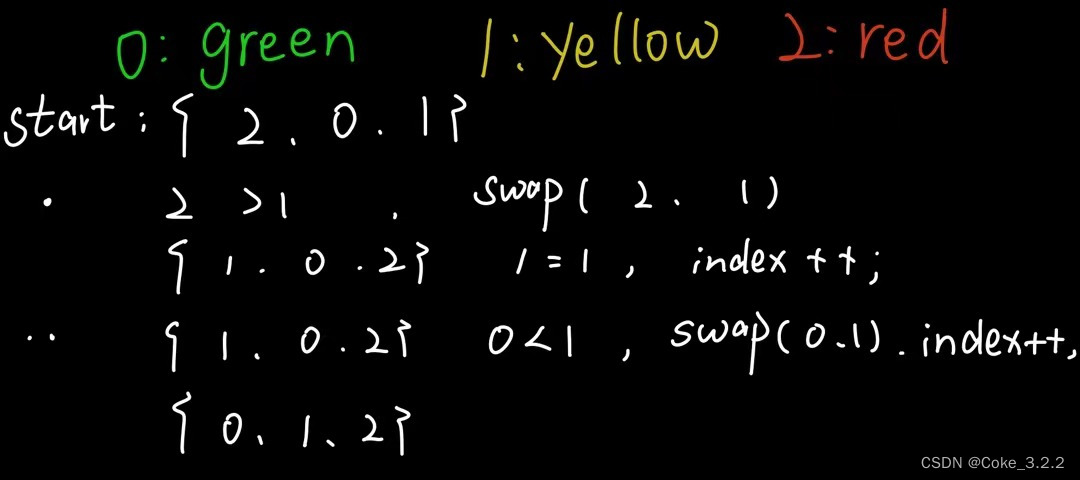 0: green 1: yellow 2: red
start: { 2. 0. 1}
. 2 >1 . swap( 2. 1)
{ 1. 0. 2} 1 = 1 , index ++;
.. { 1. 0. 2} 0<1 , swap(0.1). index++,
{ 0. 1、2}
CSDN @Coke_3.2.2